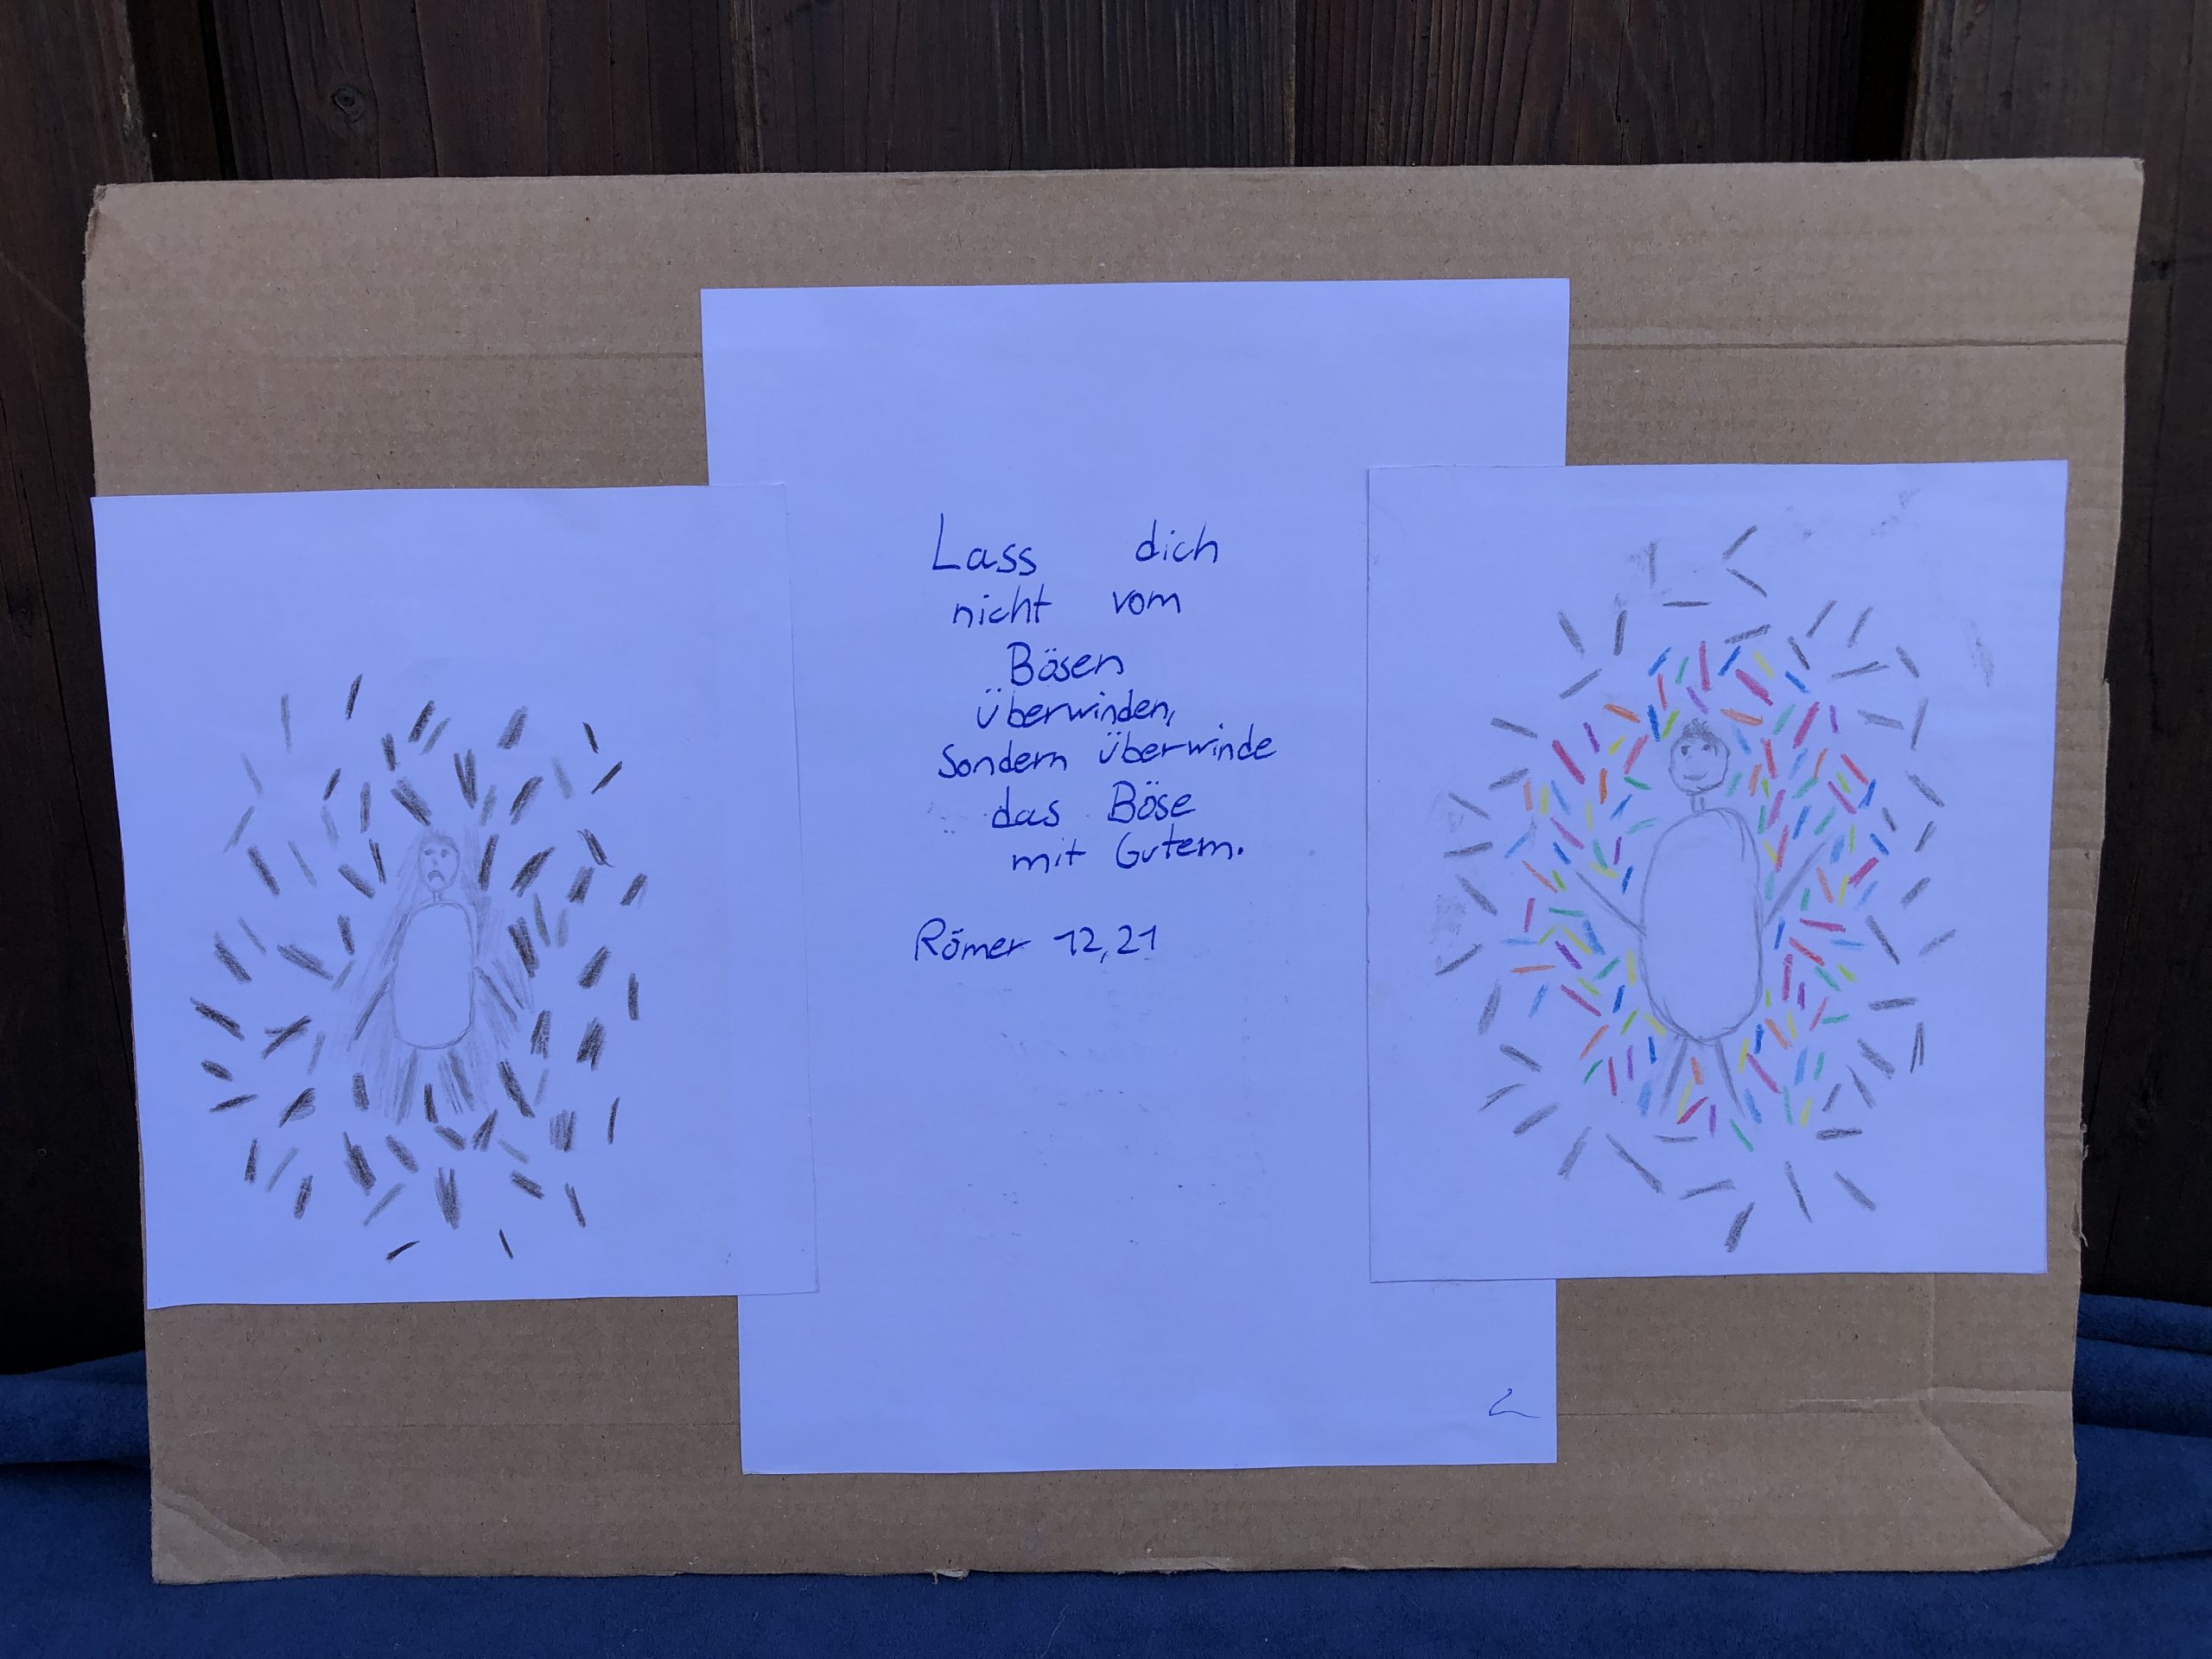 Lass dich
nicht vom
Bösen
überwinden,
sondern überwinde
das Böse
mit Gutem.
Römer 12,21